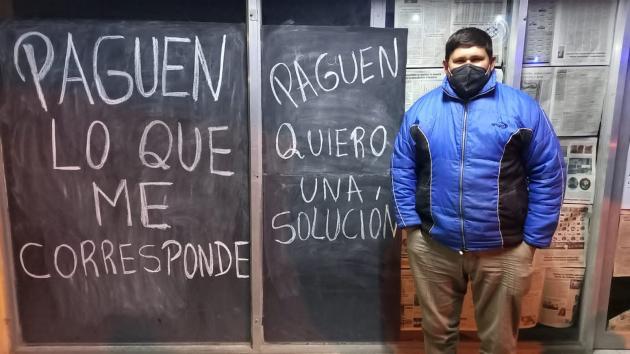 PAGUEN
LO QUE
ME
CORRESPONDE
PAGUEN
QUIERO
UNA
SOLUCIÓN